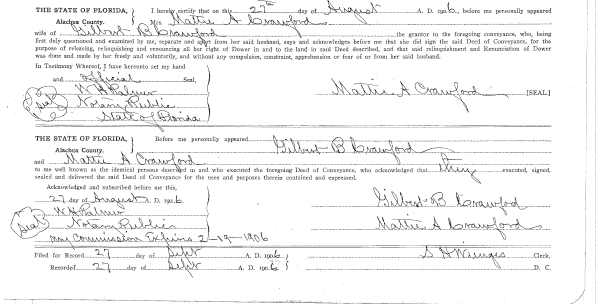 THE STATE OF FLORIDA, } I hereby certify that on this 27th day of August A. D. 1906, before me personally appeared
Alachua County. Mrs Mattie A Crawford
wife of Gilbert B Crawford the grantor in the foregoing conveyance, who, being
first duly questioned and examined by me, separate and apart from her said husband, says and acknowledges before me that she did the said Deed of Conveyance, for the
purpose of releasing, relinquishing and renouncing all her right of Dower in and to the land in said Deed described, and that said relinquishment and Renunciation of Dower
was done and made by her freely and voluntarily, and without any compulsion, constraint, apprehension or fear of or from her said husband.
In Testimony Whereof, I have hereunto set my hand
and official Seal,
W H Palmer
Seal Notary Public
State of Florida
Mattie A Crawford [SEAL]
THE STATE OF FLORIDA, } Before me personally appeared Gilbert B Crawford
Alachua County.
and Mattie A Crawford
to me well known as the identical persons described in and who executed the foregoing Deed of Conveyance, who acknowledged that they executed, signed,
sealed and delivered the said Deed of Conveyance for the uses and purposes therein contained and expressed.
Acknowledged and subscribed before me this,
27 day of August A. D. 1906
W H Palmer
Seal Notary Public
My Commission Expires 2-19-1906
Gilbert B Crawford
Mattie A Crawford
Filed for Record 27 day of Sept A. D. 1906
Recorded 27 day of Sept A. D. 1906
S H Wienges Clerk.
D. C.